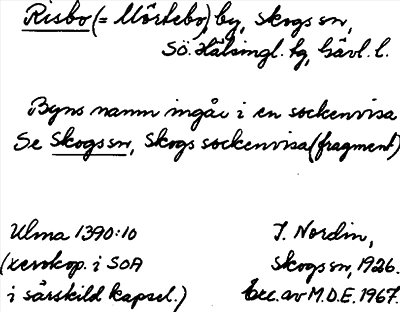 Risbo (= Mörtebo), by, Skogs sn,
Sö. Hälsingl. tg, Gävl. l.
Byns namn ingår i en sockenvisa
Se Skogs sn, Skogs sockenvisa (fragment)
Ulma 1390:10
(xerokop. i SOA
i särskild kapsel.)
J. Nordin,
Skogs sn, 1926.
Exc. av M.D.E. 1967.